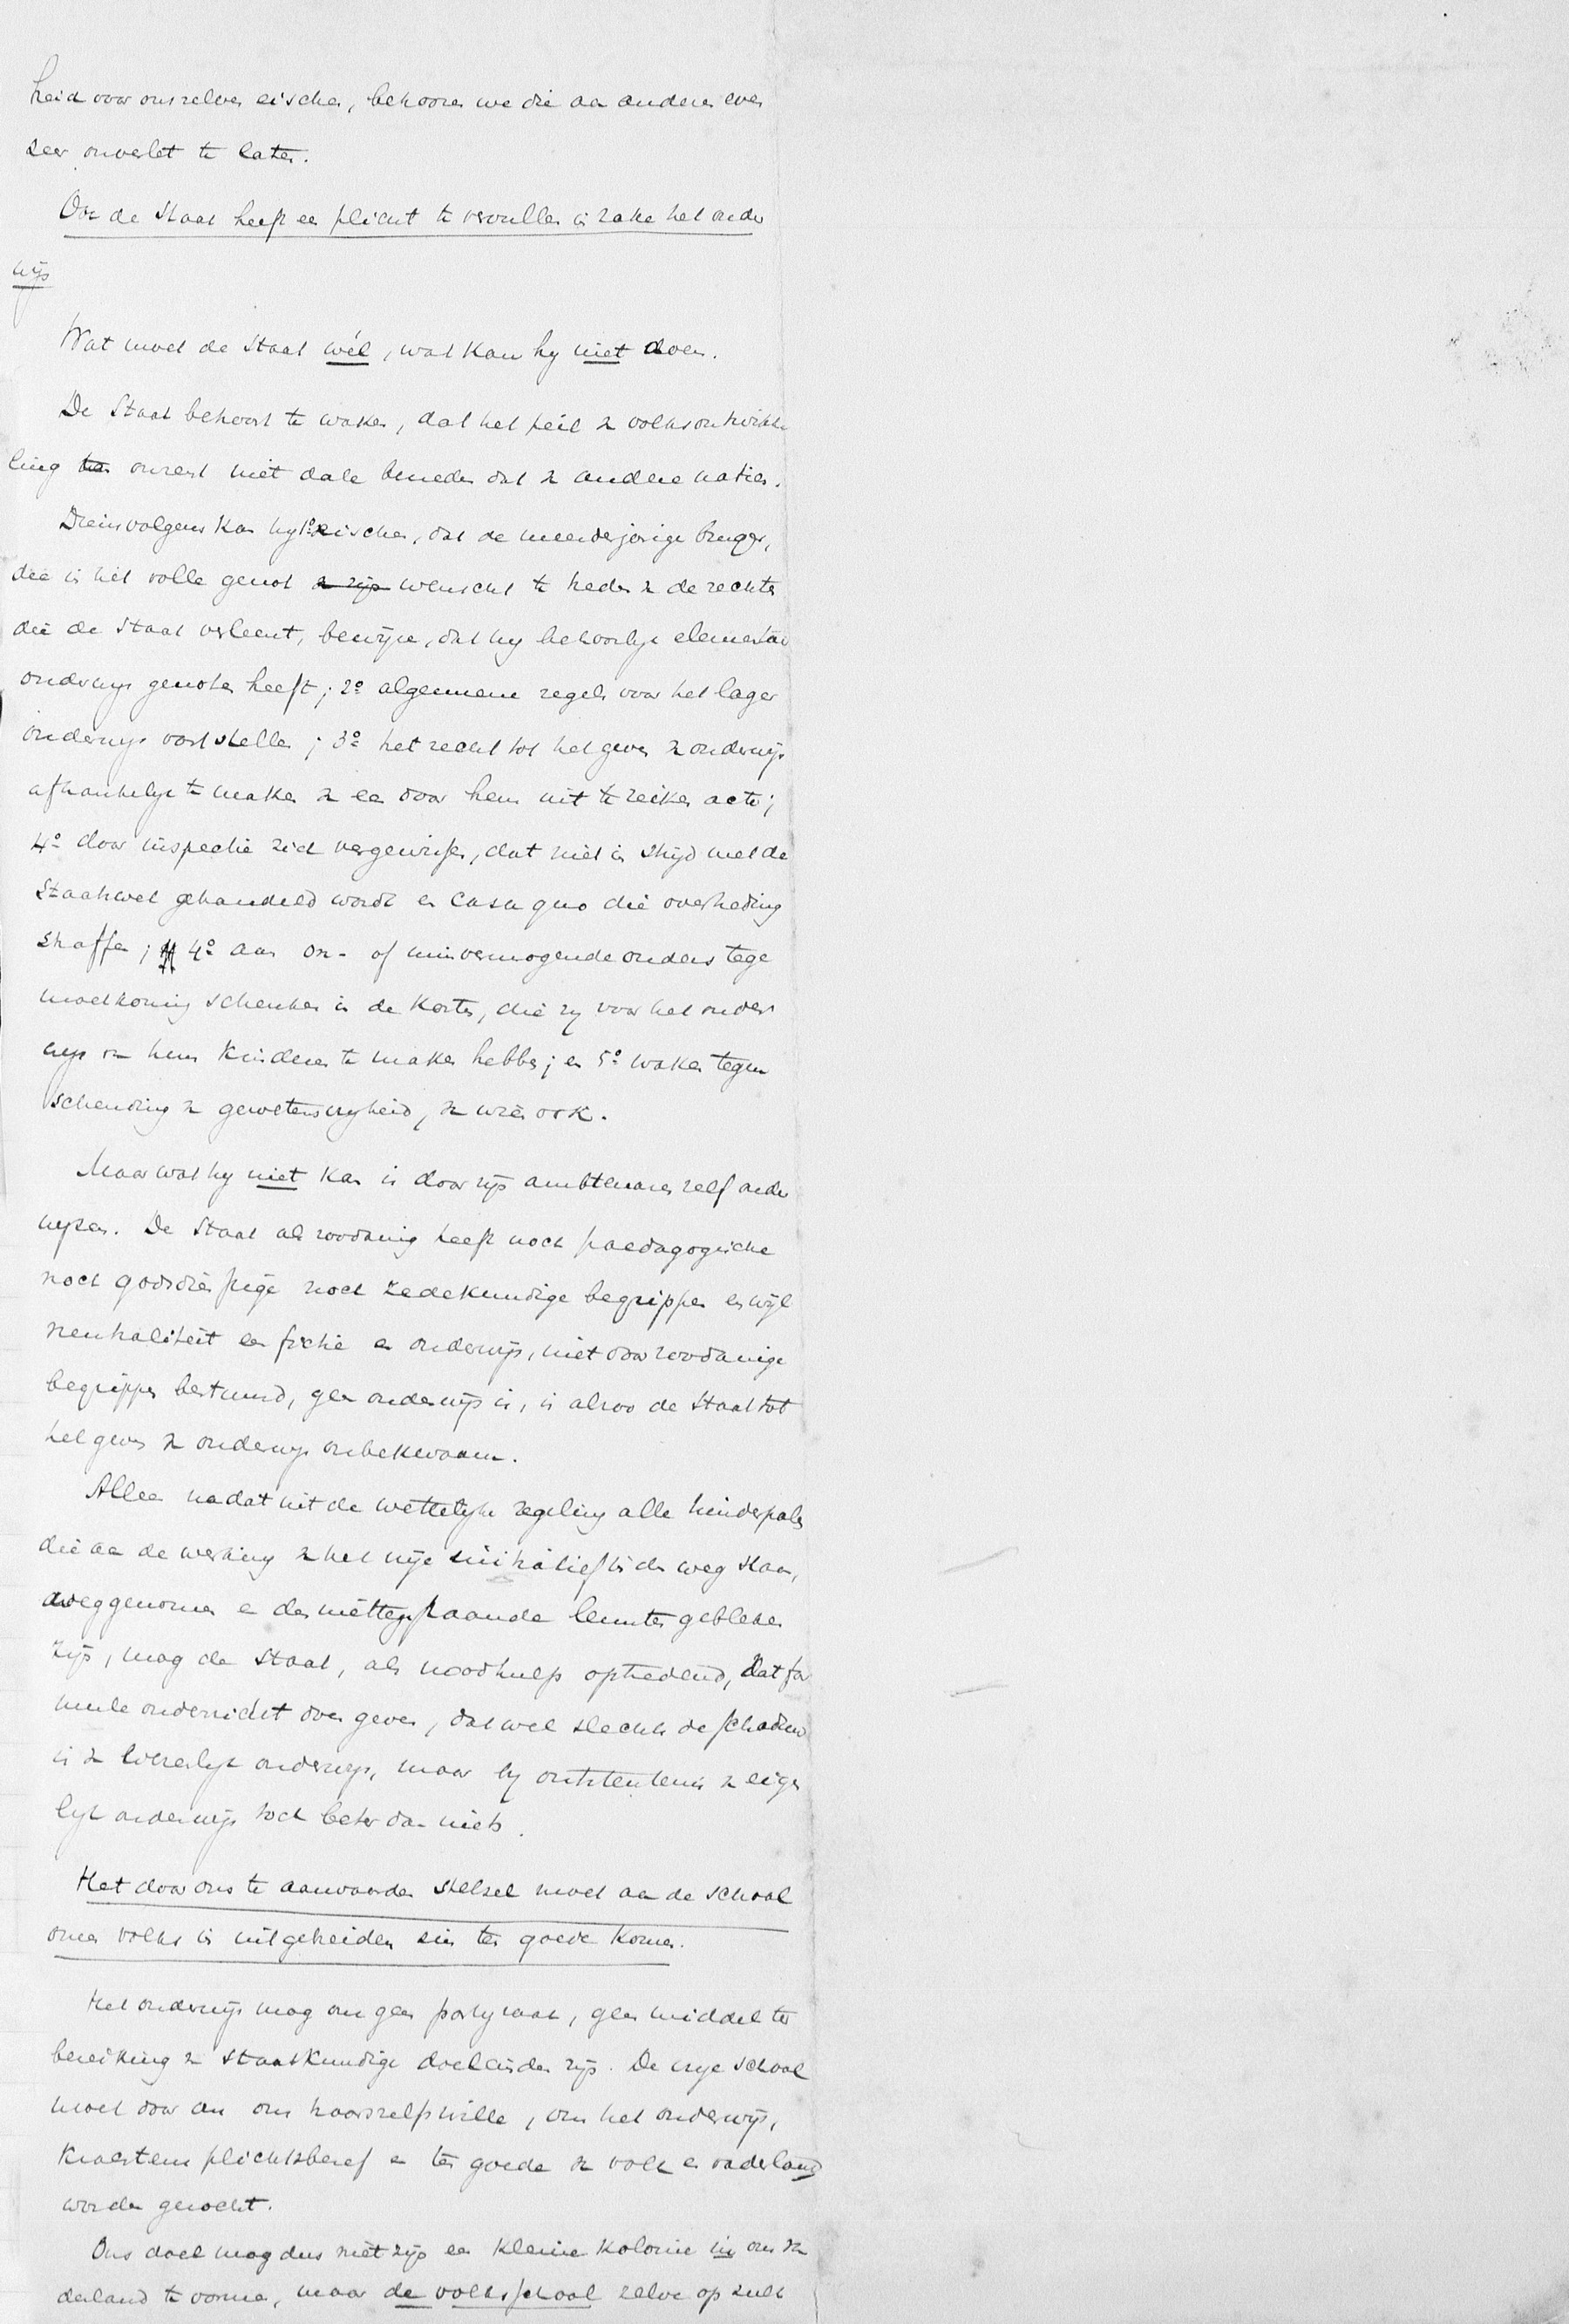 heid voor ons zelven eischen, behooren we die aan anderen even
zeer onverlet te laten.
Ook de Staat heeft een plicht te vervullen in zake het onder
wijs
Wat moet de Staat wél, wat kan hij niet doen.
De Staat behoort te waken, dat het peil van volksontwikke
ling ten onzent niet dale beneden dat van andere natien.
Dienvolgens kan hij 1o eischen, dat de meerderjarige burger,
die in het volle genot van zijn wenscht te treden van de rechten
die de Staat verleent, bewijze, dat hij behoorlijk elementair
onderwijs genoten heeft; 2o algemeene regels voor het lager
onderwijs vaststellen; 3o het recht tot het geven van onderwijs
afhankelijk te maken van een door hem uit te reiken acte;
4o door inspectie zich vergewissen, dat niet in strijd met de
Staatswet gehandeld wordt en casu quo die overtreding
straffen; 4o aan on- of minvermogende ouders tege
moetkoming schenken in de kosten, die zij voor het onder
wijs van hun kinderen te maken hebben; en 5o waken tegen
schending van gewetensvrijheid, van wien ook.
Maar wat hij niet kan is door zijn ambtenaren zelf onder
wijzen. De Staat als zoodanig heeft noch paedagogische
noch godsdienstige noch zedekundige begrippen en wijl
neutraliteit een fictie en onderwijs, niet door zoodanige
begrippen bestuurd, geen onderwijs is, is alzoo de Staat tot
het geven van onderwijs onbekwaam.
Alleen nadat uit de wettelijke regeling alle hinderpalen
die aan de werking van het vrije initiatief in den weg staan,
weggenomen en desniettegenstaande leemten gebleven
zijn, mag de Staat, als noodhulp optredend, dat for
meele onderricht doen geven, dat wel slechts de schaduw
is van wezenlijk onderwijs, maar bij ontstentenis van eigen
lijk onderwijs toch beter dan niets.
Het door ons te aanvaarden stelsel moet aan de school
onzes volks in uitgebreiden zin ten goede komen.
Het onderwijs mag ons geen partijzaak, geen middel ter
bereiking van staatkundige doeleinden zijn. De vrije school
moet door ons om haarszelfs wille, om het onderwijs,
krachtens plichtsbesef en ten goede van volk en vaderland
worden gezocht.
Ons doel mag dus niet zijn een kleine kolonie in ons va
derland te vormen, maar de volksschool zelve op zulk